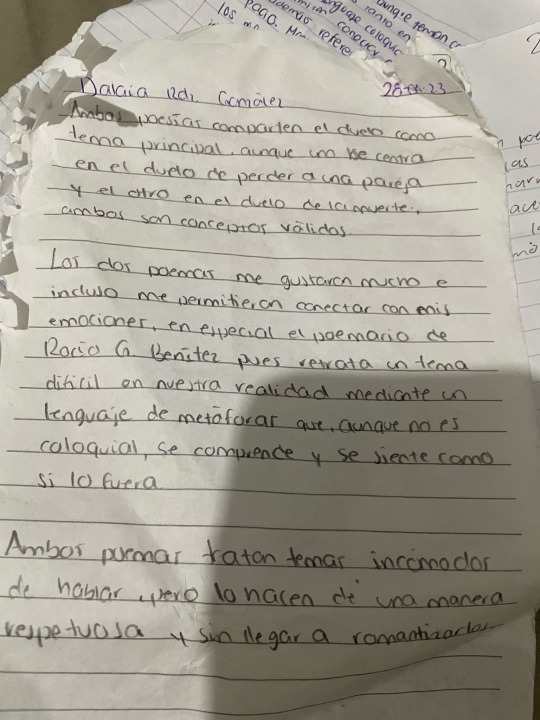 los
Rdz. González
28-04-23
Ambas poesías comparten el duelo como
tema principal, aunque uno se centra
en el duelo de perder a una pareja
y el otro en el duelo de la muerte,
ambos son conceptos válidos.
Los dos poemas me gustaron mucho e
incluso me permitieron conectar con mis
emociones, en especial el poemario de
Rocío G. Benítez pues retrata un tema
difícil en nuestra realidad mediante un
lenguaje de metáforas que, aunque no es
coloquial, se comprende y se siente como
si lo fuera
Ambos puemas tratan temas incómodos
de hablar, pero lo hacen de una manera
respetuosa y sin llegar a romantizarlos